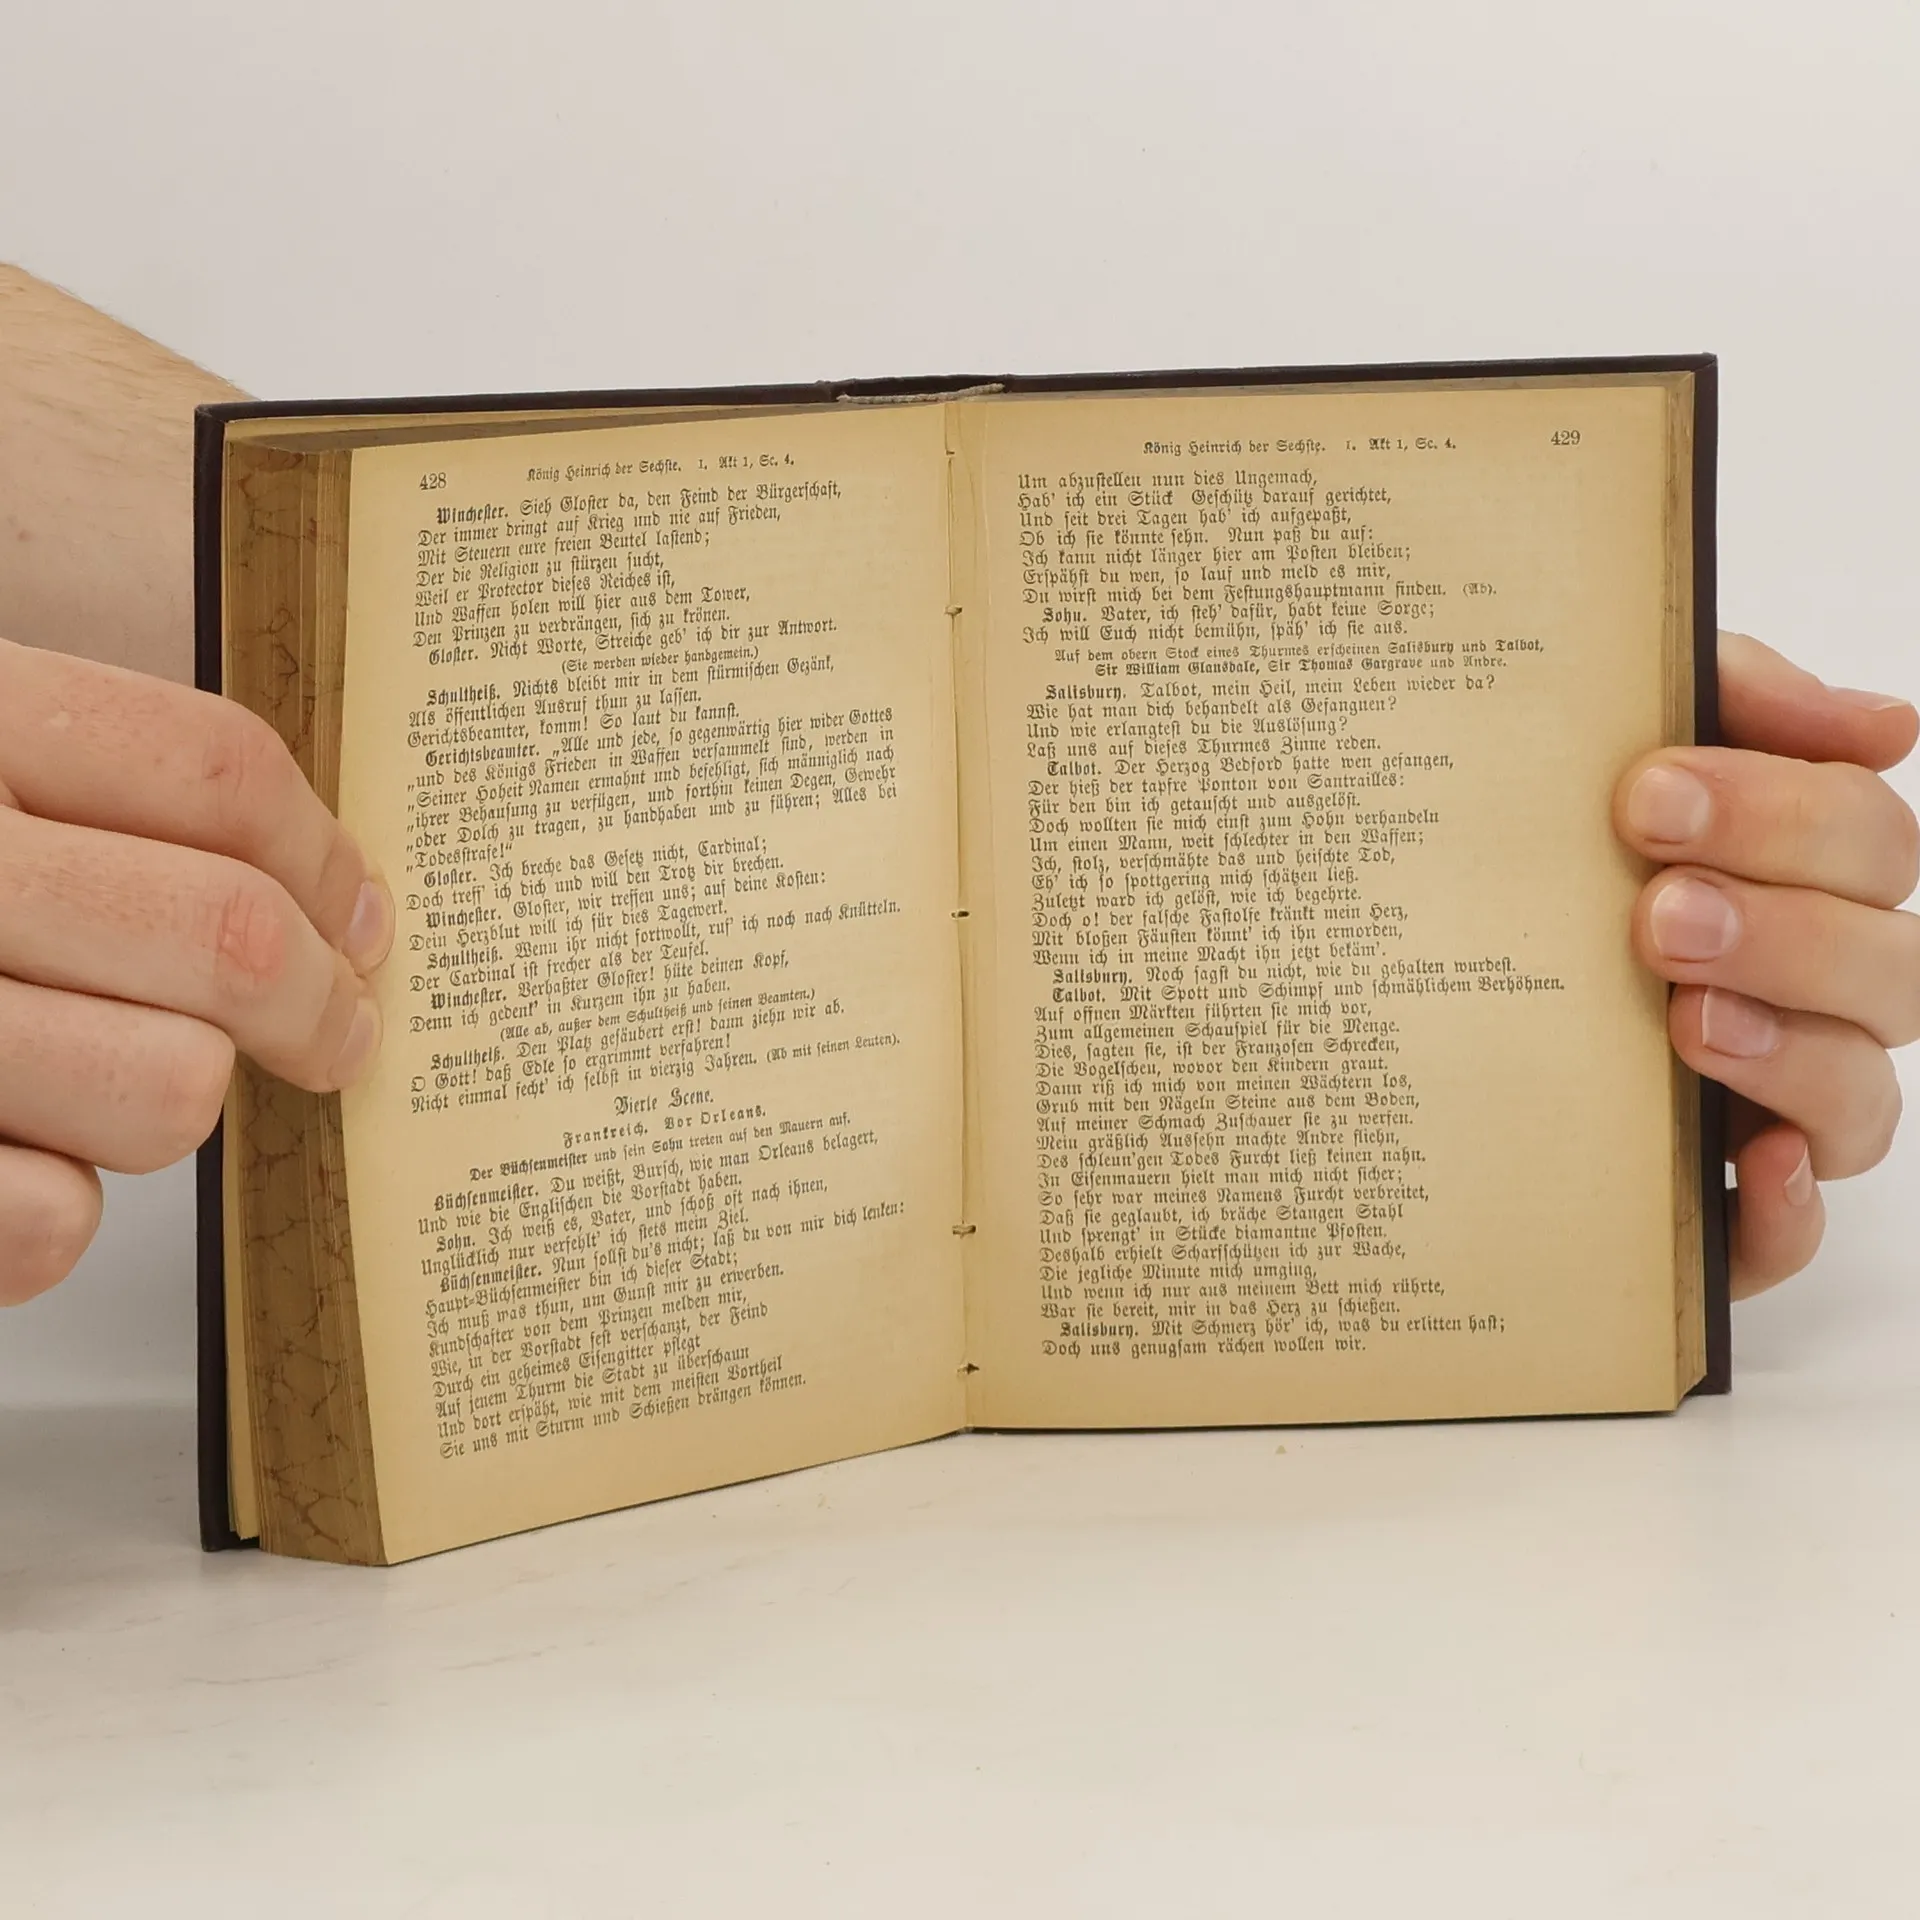 428
König Heinrich der Sechste. I. Akt 1, Sc. 4.
Winchester. Sieh Gloster da, den Feind der Bürgerschaft,
Der immer dringt auf Krieg und nie auf Frieden,
Mit Steuern eure freien Beutel lastend;
Der die Religion zu stürzen sucht,
Weil er Protector dieses Reiches ist,
Und Waffen holen will hier aus dem Tower,
Den Prinzen zu verdrängen, sich zu krönen.
Gloster. Nicht Worte, Streiche geb' ich dir zur Antwort.
(Sie werden wieder handgemein.)
Schultheiß. Nichts bleibt mir in dem stürmischen Gezänk,
Als öffentlichen Ausruf thun zu lassen.
Gerichtsbeamter, komm! So laut du kannst.
Gerichtsbeamter. „Alle und jede, so gegenwärtig hier wider Gottes
„und des Königs Frieden in Waffen versammelt sind, werden in
„Seiner Hoheit Namen ermahnt und befehligt, sich männiglich nach
„ihrer Behausung zu verfügen, und forthin keinen Degen, Gewehr
„oder Dolch zu tragen, zu handhaben und zu führen; Alles bei
„Todesstrafe!“
Gloster. Ich breche das Gesetz nicht, Cardinal;
Doch treff' ich dich und will den Trotz dir brechen.
Winchester. Gloster, wir treffen uns; auf deine Kosten:
Dein Herzblut will ich für dies Tagewerk.
Schultheiß. Wenn ihr nicht fortwollt, ruf' ich noch nach Knütteln.
Der Cardinal ist frecher als der Teufel.
Winchester. Verhaßter Gloster! hüte deinen Kopf,
Denn ich gedenk' in Kurzem ihn zu haben.
(Alle ab, außer dem Schultheiß und seinen Beamten.)
Schultheiß. Den Platz gesäubert erst! dann ziehn wir ab.
O Gott! daß Edle so ergrimmt verfahren!
Nicht einmal fecht' ich selbst in vierzig Jahren. (Ab mit seinen Leuten).
Vierte Scene.
Frankreich. Vor Orleans.
Der Büchsenmeister und sein Sohn treten auf den Mauern auf.
Büchsenmeister. Du weißt, Bursch, wie man Orleans belagert,
Und wie die Englischen die Vorstadt haben.
Sohn. Ich weiß es, Vater, und schoß oft nach ihnen,
Unglücklich nur verfehlt' ich stets mein Ziel.
Büchsenmeister. Nun sollst du's nicht; laß du von mir dich lenken:
Haupt-Büchsenmeister bin ich dieser Stadt;
Ich muß was thun, um Gunst mir zu erwerben.
Kundschafter von dem Prinzen melden mir,
Wie, in der Vorstadt fest verschanzt, der Feind
Durch ein geheimes Eisengitter pflegt
Auf jenem Thurm die Stadt zu überschaun
Und dort erspäht, wie mit dem meisten Vortheil
Sie uns mit Sturm und Schießen drängen können.
König Heinrich der Sechste. I. Akt 1, Sc. 4.
429
Um abzustellen nun dies Ungemach,
Hab' ich ein Stück Geschütz darauf gerichtet,
Und seit drei Tagen hab' ich aufgepaßt,
Ob ich sie könnte sehn. Nun paß du auf:
Ich kann nicht länger hier am Posten bleiben;
Erspähst du wen, so lauf und meld es mir,
Du wirst mich bei dem Festungshauptmann finden. (Ab).
Sohn. Vater, ich steh' dafür, habt keine Sorge;
Ich will Euch nicht bemühn, späh' ich sie aus.
Auf dem obern Stock eines Thurmes erscheinen Salisbury und Talbot,
Sir William Glansdale, Sir Thomas Gargrave und Andre.
Salisbury. Talbot, mein Heil, mein Leben wieder da?
Wie hat man dich behandelt als Gefangnen?
Und wie erlangtest du die Auslösung?
Laß uns auf dieses Thurmes Zinne reden.
Talbot. Der Herzog Bedford hatte wen gefangen,
Der hieß der tapfre Ponton von Santrailles:
Für den bin ich getauscht und ausgelöst.
Doch wollten sie mich einst zum Hohn verhandeln
Um einen Mann, weit schlechter in den Waffen;
Ich, stolz, verschmähte das und heischte Tod,
Eh' ich so spottgering mich schätzen ließ.
Zuletzt ward ich gelöst, wie ich begehrte.
Doch o! der falsche Fastolfe kränkt mein Herz,
Mit bloßen Fäusten könnt' ich ihn ermorden,
Wenn ich in meine Macht ihn jetzt bekäm'.
Salisbury. Noch sagst du nicht, wie du gehalten wurdest.
Talbot. Mit Spott und Schimpf und schmählichem Verhöhnen.
Auf offnen Märkten führten sie mich vor,
Zum allgemeinen Schauspiel für die Menge.
Dies, sagten sie, ist der Franzosen Schrecken,
Die Vogelscheu, wovor den Kindern graut.
Dann riß ich mich von meinen Wächtern los,
Grub mit den Nägeln Steine aus dem Boden,
Auf meiner Schmach Zuschauer sie zu werfen.
Mein gräßlich Aussehn machte Andre fliehn,
Des schleun'gen Todes Furcht ließ keinen nahn.
In Eisenmauern hielt man mich nicht sicher;
So sehr war meines Namens Furcht verbreitet,
Daß sie geglaubt, ich bräche Stangen Stahl
Und sprengt' in Stücke diamantne Pfosten.
Deshalb erhielt Scharfschützen ich zur Wache,
Die jegliche Minute mich umging,
Und wenn ich nur aus meinem Bett mich rührte,
War sie bereit, mir in das Herz zu schießen.
Salisbury. Mit Schmerz hör' ich, was du erlitten hast;
Doch uns genugsam rächen wollen wir.